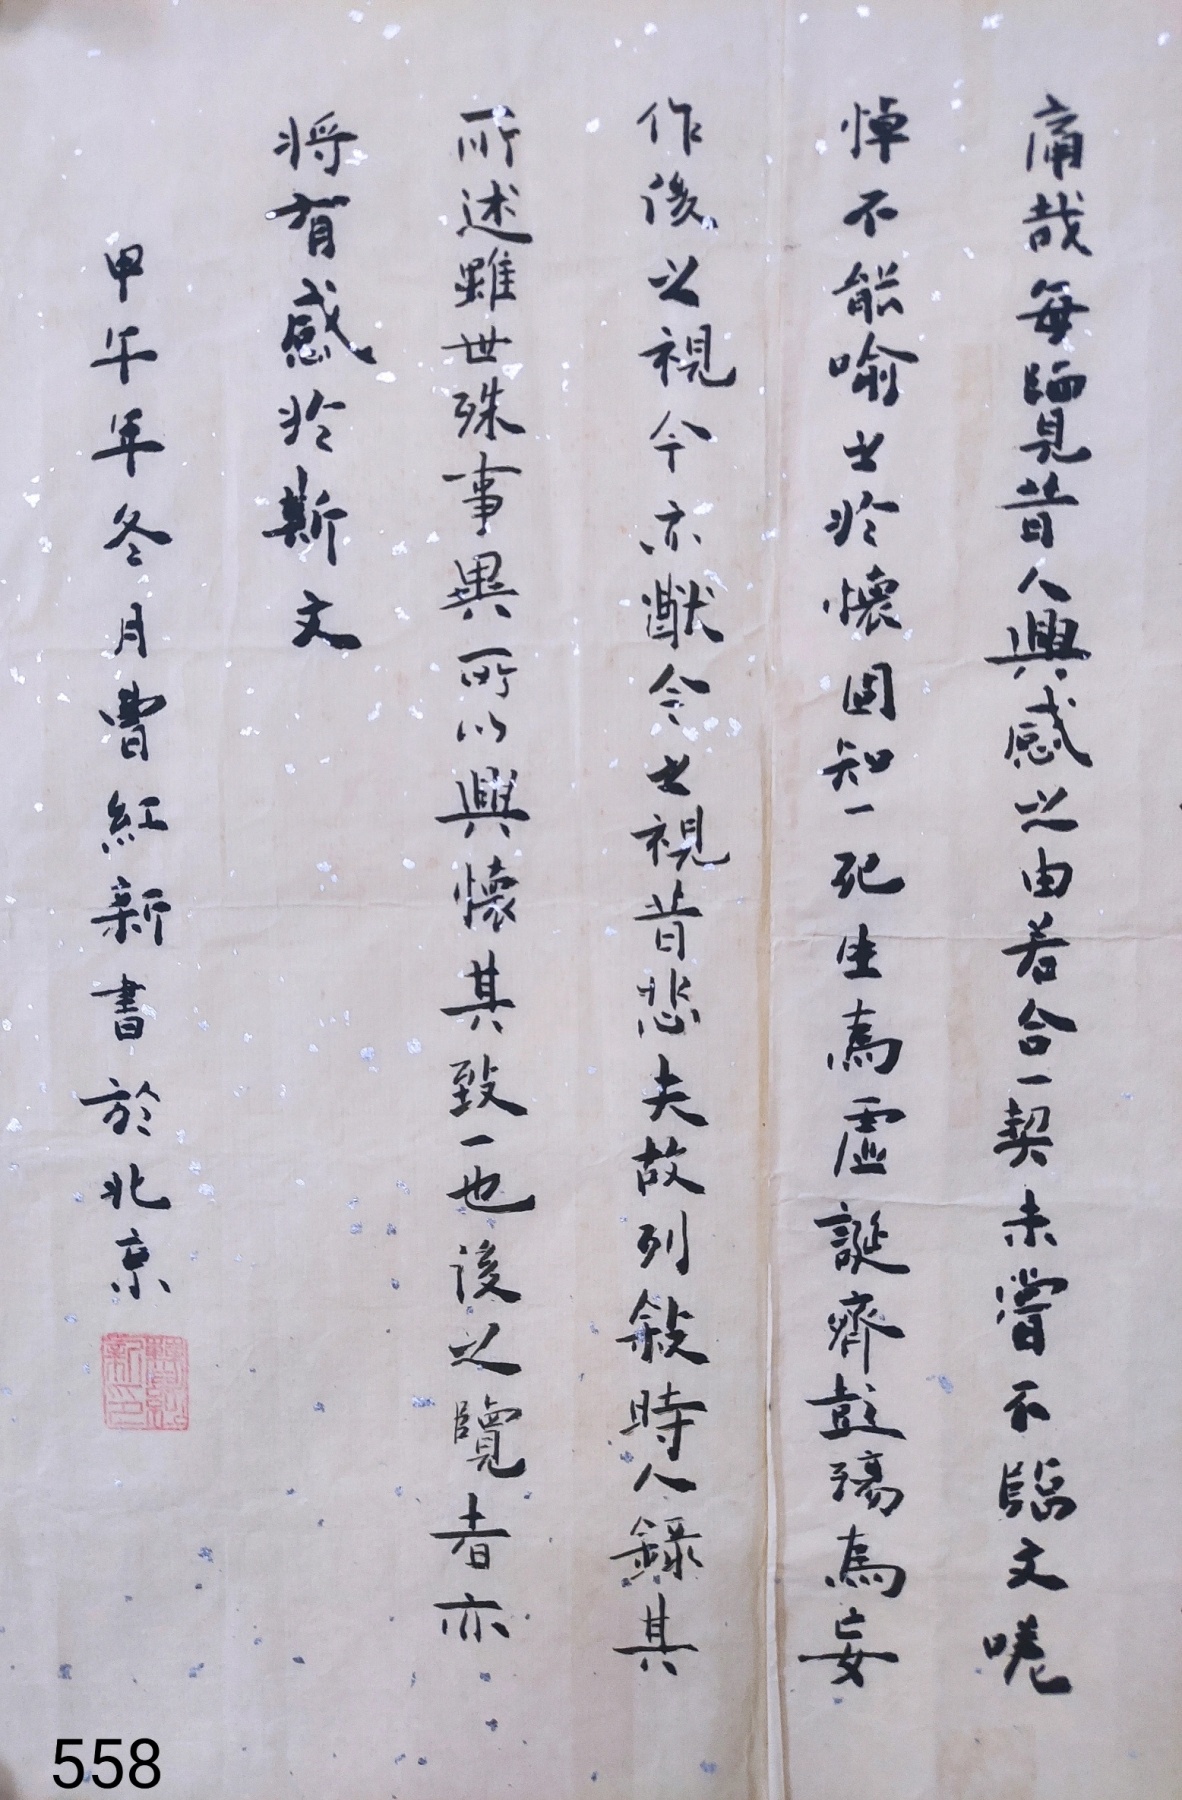 痛哉每覽昔人興感之由若合一契未嘗不臨文嗟
悼不能喻之於懷固知一死生為虛誕齊彭殤為妄
作後之視今亦猷今之視昔悲夫故列敘時人錄其
所述雖世殊事異所以興懷其致一也後之覽者亦
將有感於斯文
甲午年冬月曹紅新書於北京
曹紅新印
558